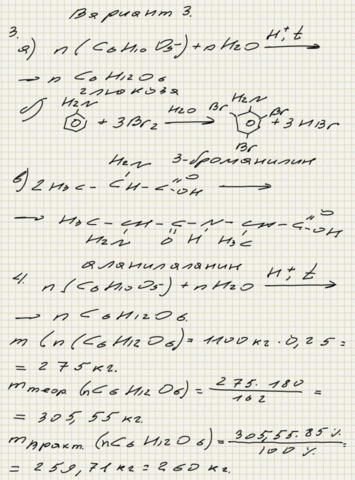 Вариант 3.
3.
а) n(C6H10O5) + nH2O H+, t →
→ n C6H12O6
глюкоза
б) H2N + 3Br2 H2O → Br H2N Br Br + 3HBr
3-броманилин
в) 2 H3C - CH - C =O -OH →
H2N
→ H3C - CH - C - N - CH - C =O -OH
H2N O H H3C
аланилаланин
4. n(C6H10O5) + nH2O H+, t →
→ n C6H12O6.
m(n(C6H12O6) = 1100кг · 0,25 =
= 275 кг.
mтеор (nC6H12O6) = 275 · 180 / 162 =
= 305,55 кг.
mпракт. (nC6H12O6) = 305,55 · 85% / 100% =
= 259,71 кг = 260 кг.